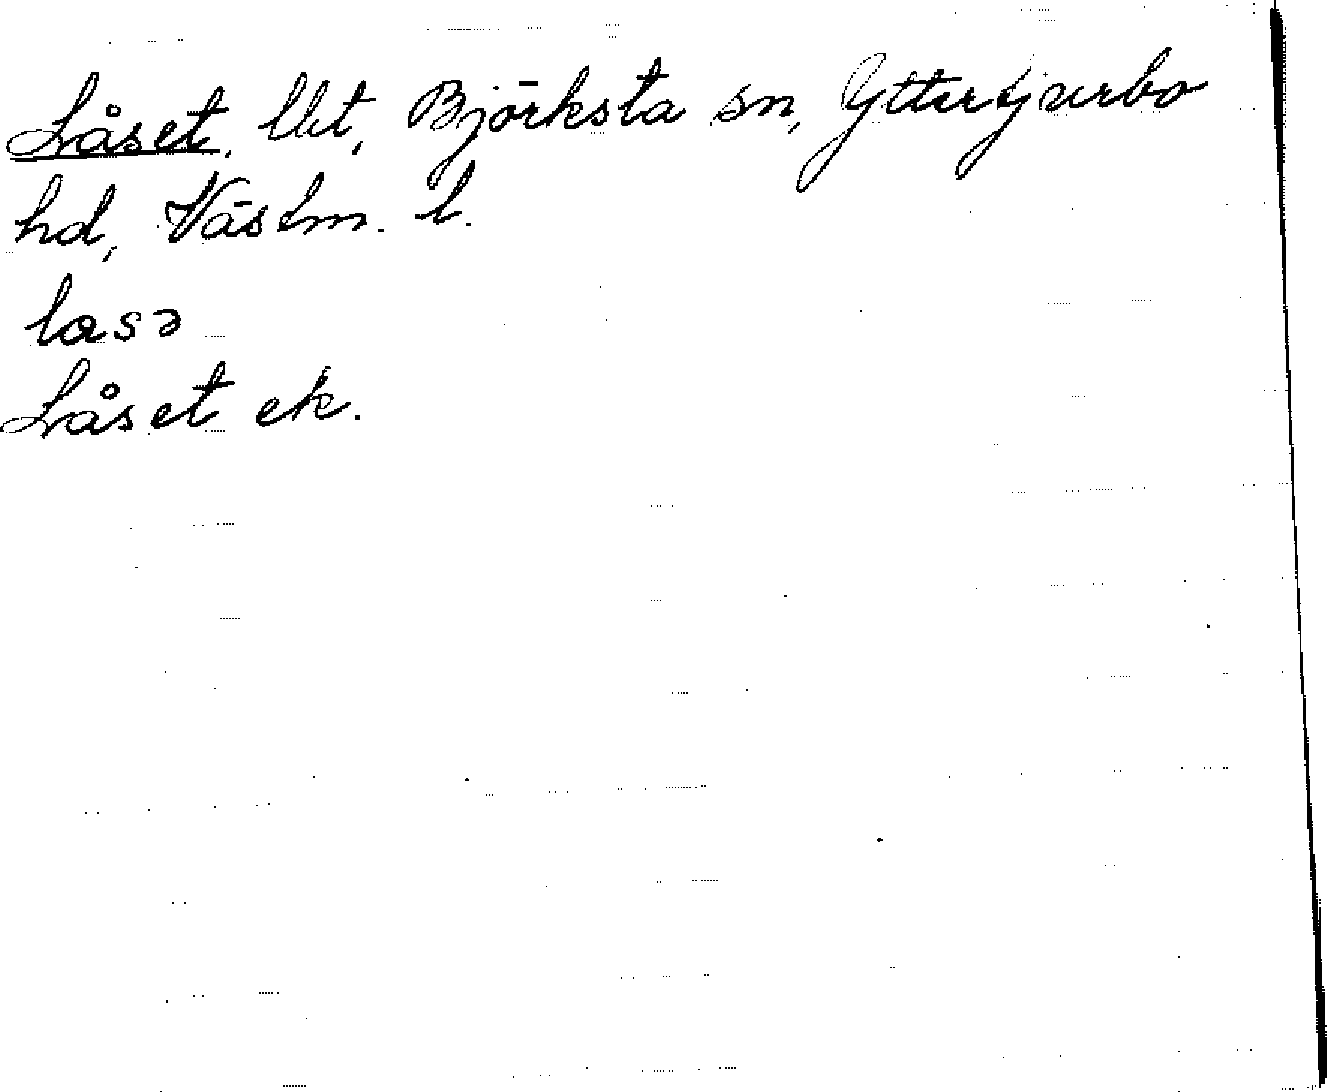 Låset, Ubt, Björksta sn, Yttertjurbo
hd, Västm. l.
lasə
Låset ek.